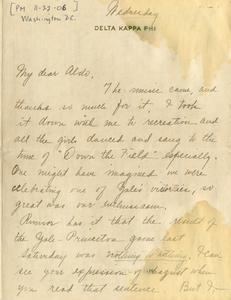 [PM 11-22-06]
Washington D.C.
Wednesday
DELTA KAPPA PHI
My dear Aldo,
The music came, and
thanks so much for it. I took
it down with me to recreation and
all the girls danced and sang to the
time of "Down the Field" especially.
One might have imagined we were
celebrating one of Yale's victories, so
great was our enthusiasm.
Rumor has it that the result of
the Yale-Princeton game last
Saturday was nothing to nothing. I can
see your expression of disgust when
you read that sentence. But I